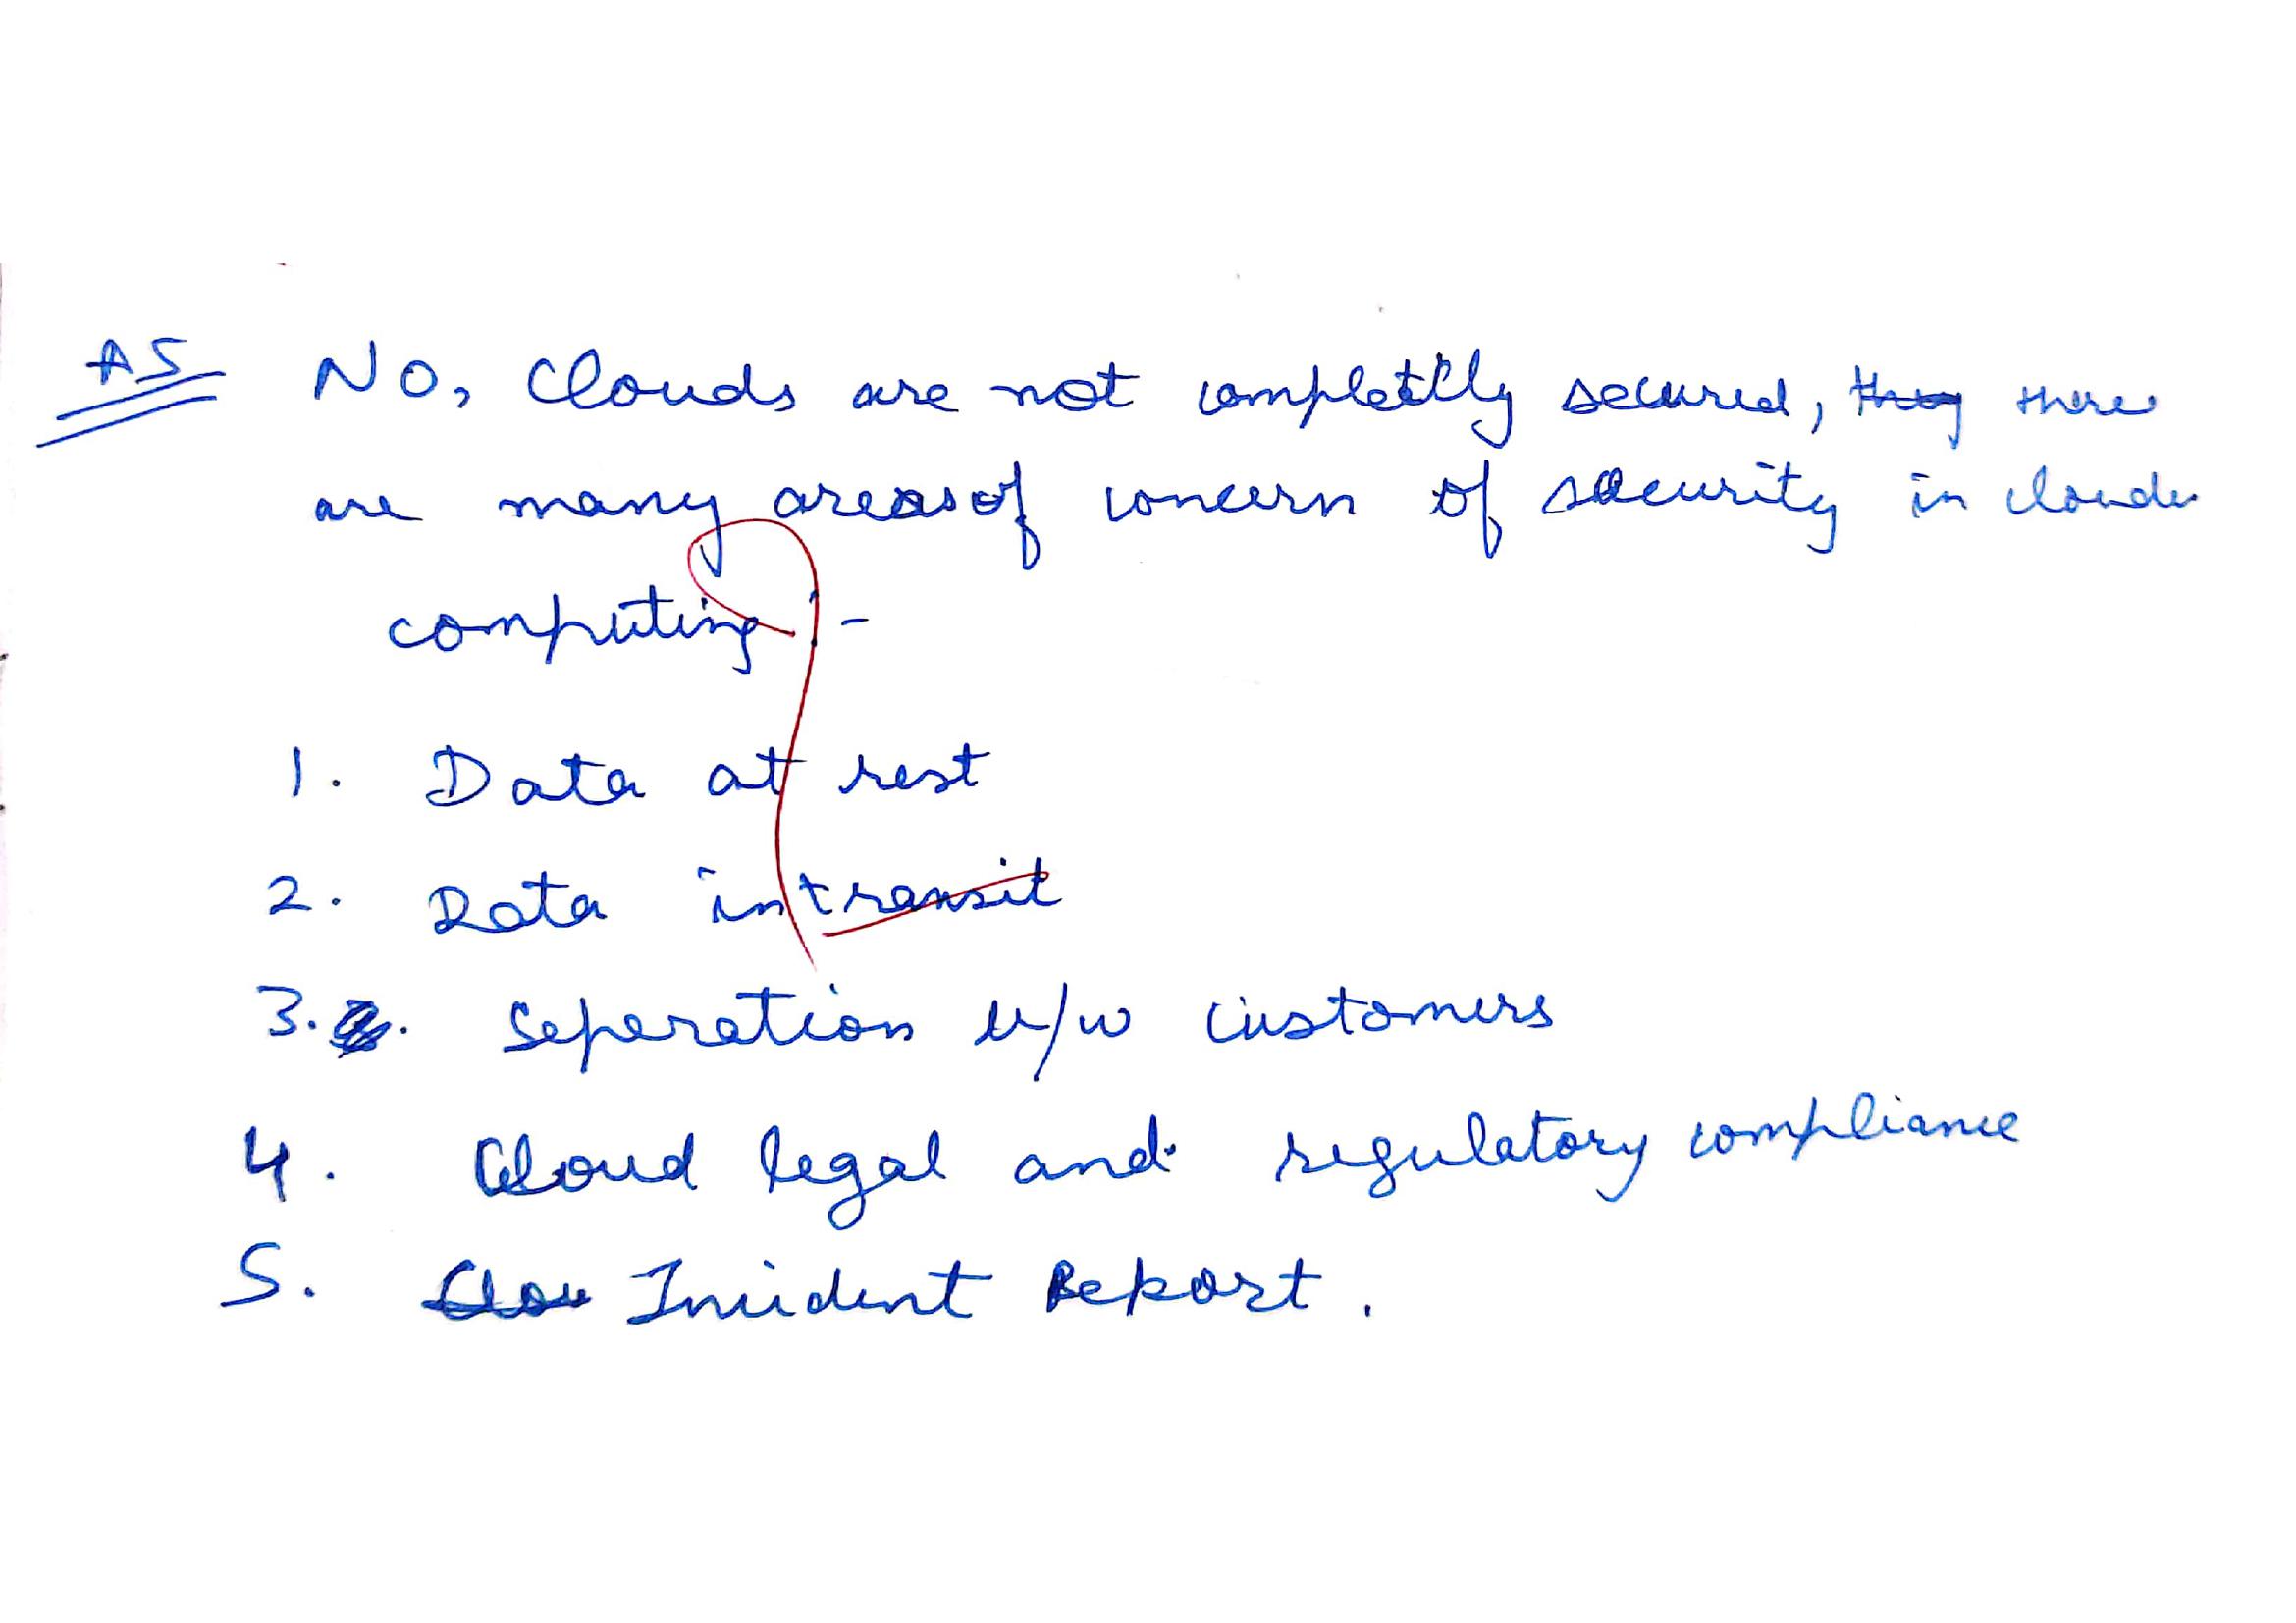 A5 No, Clouds are not completly secured, there
are many areas of concern of security in cloude
computing :-
1. Data at rest
2. Data in transit
3. Seperation b/w customers
4. Cloud legal and regulatory compliance
5. Incident Report.